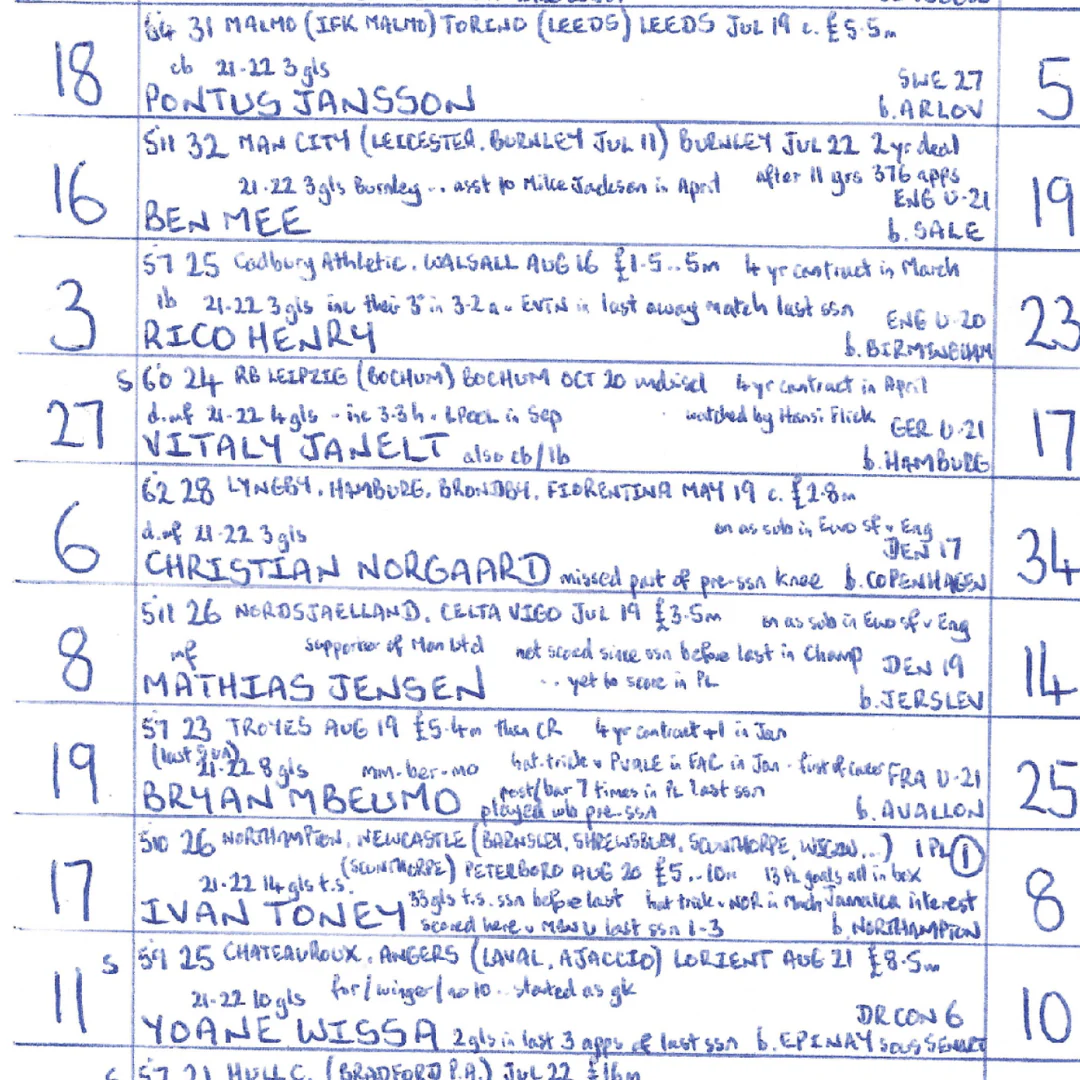 64 31 MALMO (IFK MALMO) TORINO (LEEDS) LEEDS JUL 19 c. £5.5m
18 cb 21-22 3 gls SWE 27 5
PONTUS JANSSON b. ARLOV
511 32 MAN CITY (LEICESTER. BURNLEY JUL 11) BURNLEY JUL 22 2 yr deal
16 21-22 3 gls Burnley .. asst to Mike Jackson in April after 11 yrs 376 apps 19
ENG U-21
BEN MEE b. SALE
57 25 Cadbury Athletic. WALSALL AUG 16 £1.5..5m 4 yr contract in March
3 lb 21-22 3 gls inc their 3 in 3-2 a v EVTN in last away match last ssn ENG U-20 23
RICO HENRY b. BIRMINGHAM
S 60 24 RB LEIPZIG (BOCHUM) BOCHUM OCT 20 undiscl 4 yr contract in April
27 d.mf 21-22 4 gls - inc 3-3 h v LPOOL in Sep watched by Hansi Flick GER U-21 17
VITALY JANELT also cb/lb b. HAMBURG
62 28 LYNGBY. HAMBURG. BRONDBY. FIORENTINA MAY 19 c. £2.8m
6 d.mf 21-22 3 gls on as sub in Euro sf v Eng DEN 17 34
CHRISTIAN NORGAARD missed part of pre-ssn knee b. COPENHAGEN
511 26 NORDSJAELLAND. CELTA VIGO JUL 19 £3.5m on as sub in Euro sf v Eng
8 mf supporter of Man Utd not scored since ssn before last in Champ DEN 19 14
MATHIAS JENSEN .. yet to score in PL b. JERSLEV
57 23 TROYES AUG 19 £5.4m then CR 4 yr contract +1 in Jan
(last
19 21-22 8 gls mm-ber-mo hat-trick v PVALE in FAC in Jan - first of career FRA U-21 25
post/bar 7 times in PL last ssn
BRYAN MBEUMO played wb pre-ssn b. AVALLON
510 26 NORTHAMPTON. NEWCASTLE (BARNSLEY, SHREWSBURY, SCUNTHORPE, WIGAN...) 1 PL 1
(SCUNTHORPE) PETERBORO AUG 20 £5..10m 13 PL goals all in box
17 21-22 14 gls t.s. 33 gls t.s. ssn before last hat trick v NOR in March Jamaica interest 8
IVAN TONEY scored here v MAN U last ssn 1-3 b. NORTHAMPTON
S 59 25 CHATEAUROUX. ANGERS (LAVAL, AJACCIO) LORIENT AUG 21 £8.5m
11 21-22 10 gls for/winger/no 10 .. started as gk DR CON 6 10
YOANE WISSA 2 gls in last 3 apps of last ssn b. EPINAY SOUS SENART
S 57 21 HULL C. (BRADFORD P.A.) JUL 22 £16m